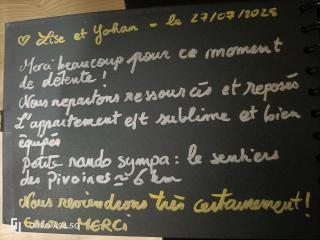 ♡ Lise et Yohan - le 27/07/2025
Merci beaucoup pour ce moment
de détente !
Nous repartons ressourcés et reposés
L'appartement est sublime et bien
équipés
Petite rando sympa : le sentiers
des Pivoines ≈ 6 km
Nous reviendrons très certainement !
Encore MERCI